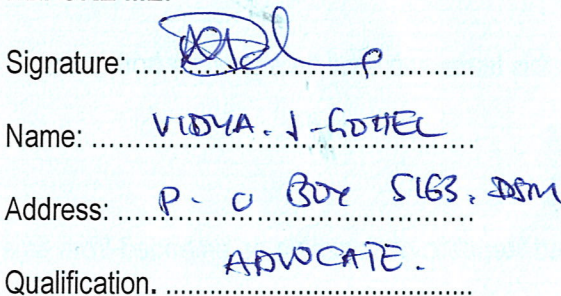 Signature: ..........................................
Name: VIDYA. J. GOHEL
Address: P. O BOX 5163. DSM
Qualification. ADVOCATE.